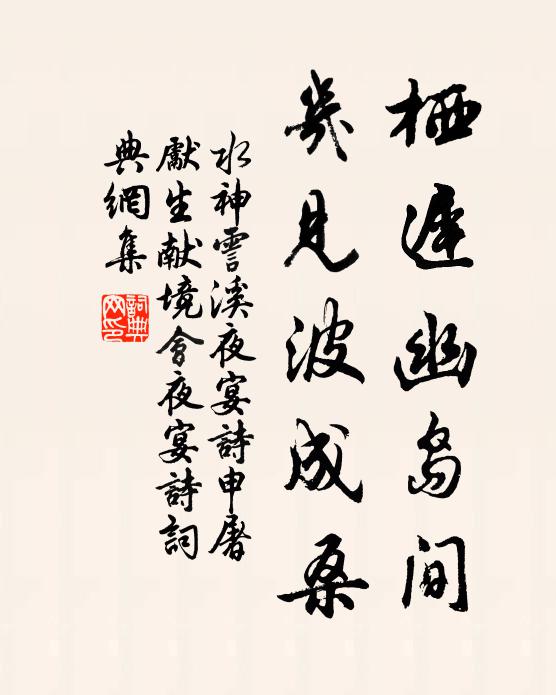 栖遲幽島間
幾見波成桑
水神霅溪夜宴詩申屠
獻生献境會夜宴詩詞
典網集
詞典
网印